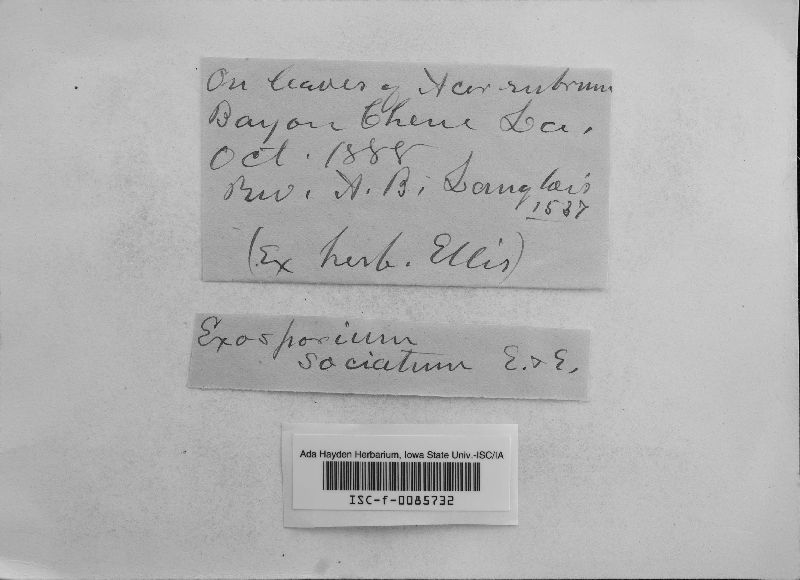 On leaves of Acer rubrum
Bayou Chene La.
Oct. 1888
Rev. A. B. Langlois
1537
(Ex herb. Ellis)
Exosporium
sociatum E. & E.
Ada Hayden Herbarium, Iowa State Univ.-ISC/IA
ISC-f-0085732